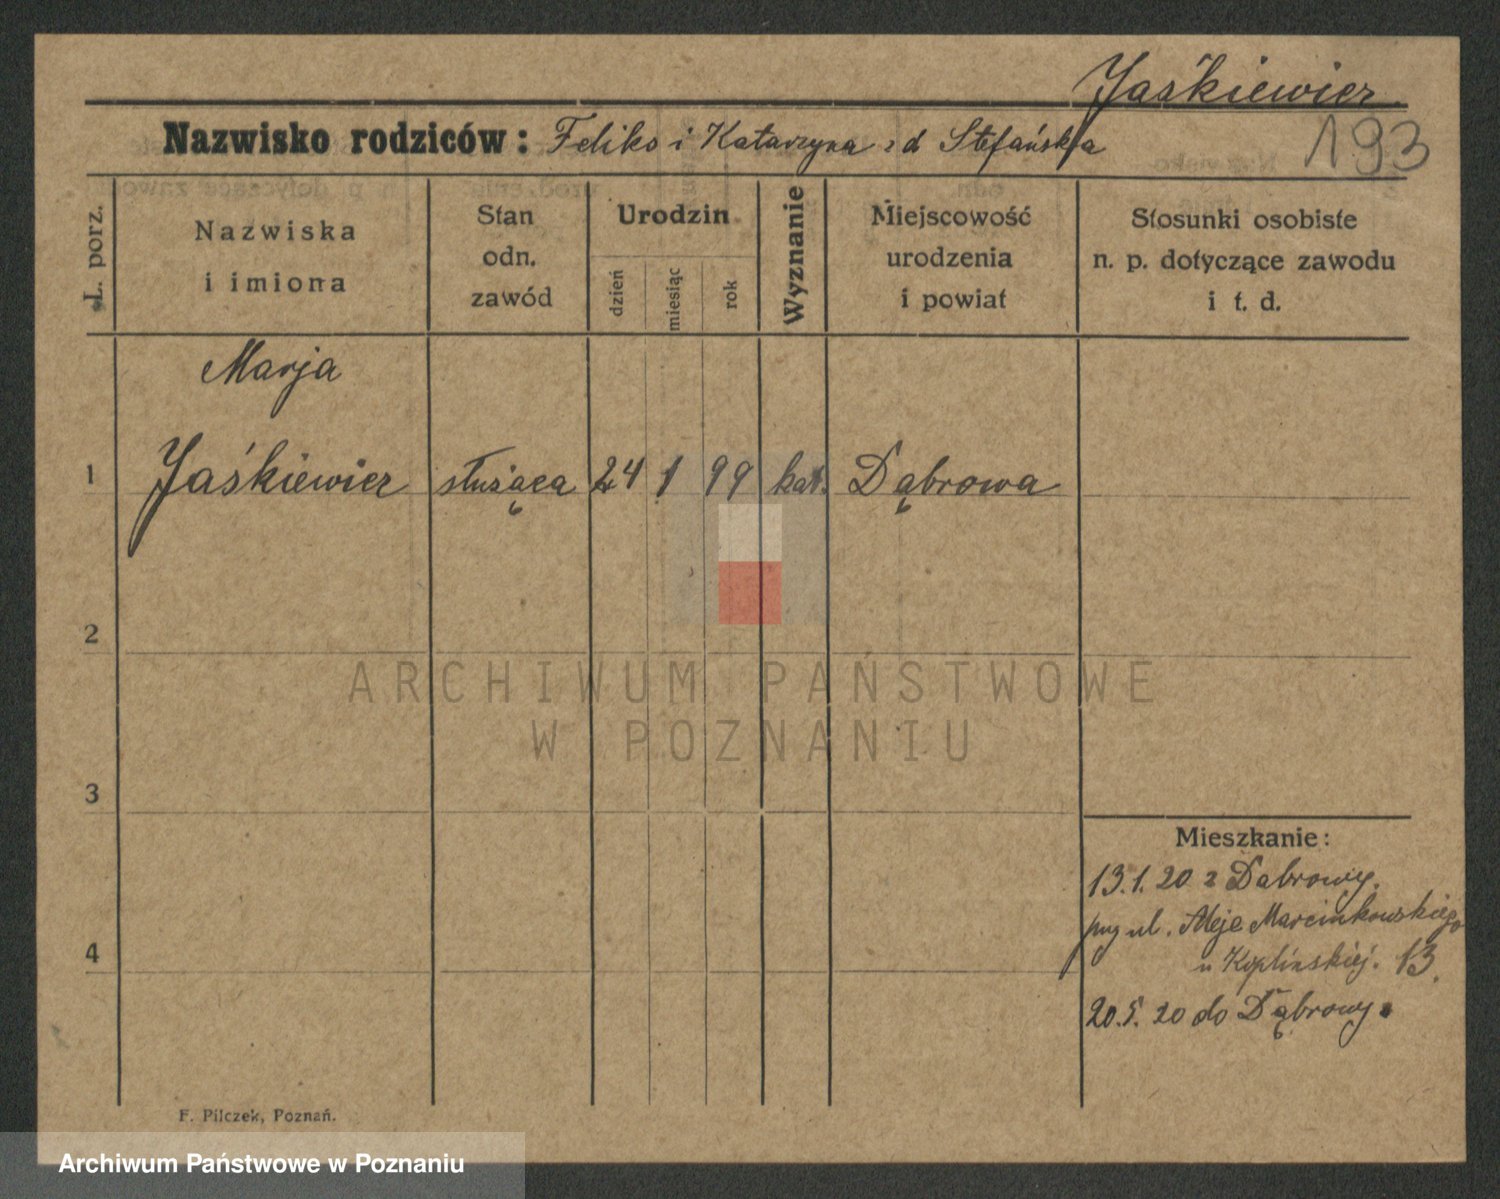 Jaśkiewicz.
193
Nazwisko rodziców: Feliks i Katarzyna z d Stefańska
L. porz.
Nazwiska
i imiona
Stan
odn.
zawód
Urodzin
dzień
miesiąc
rok
Wyznanie
Miejscowość
urodzenia
i powiat
Stosunki osobiste
n. p. dotyczące zawodu
i t. d.
Marja
1 Jaśkiewicz służąca 24 1 99 kat. Dąbrowa
2
ARCHIWUM PAŃSTWOWE
W POZNANIU
3
Mieszkanie:
13.1.20 z Dąbrowy.
ul. Aleje Marcinkowskiego
u 13.
4
20.5.20 do Dąbrowy.
F. Pilczek, Poznań.
Archiwum Państwowe w Poznaniu